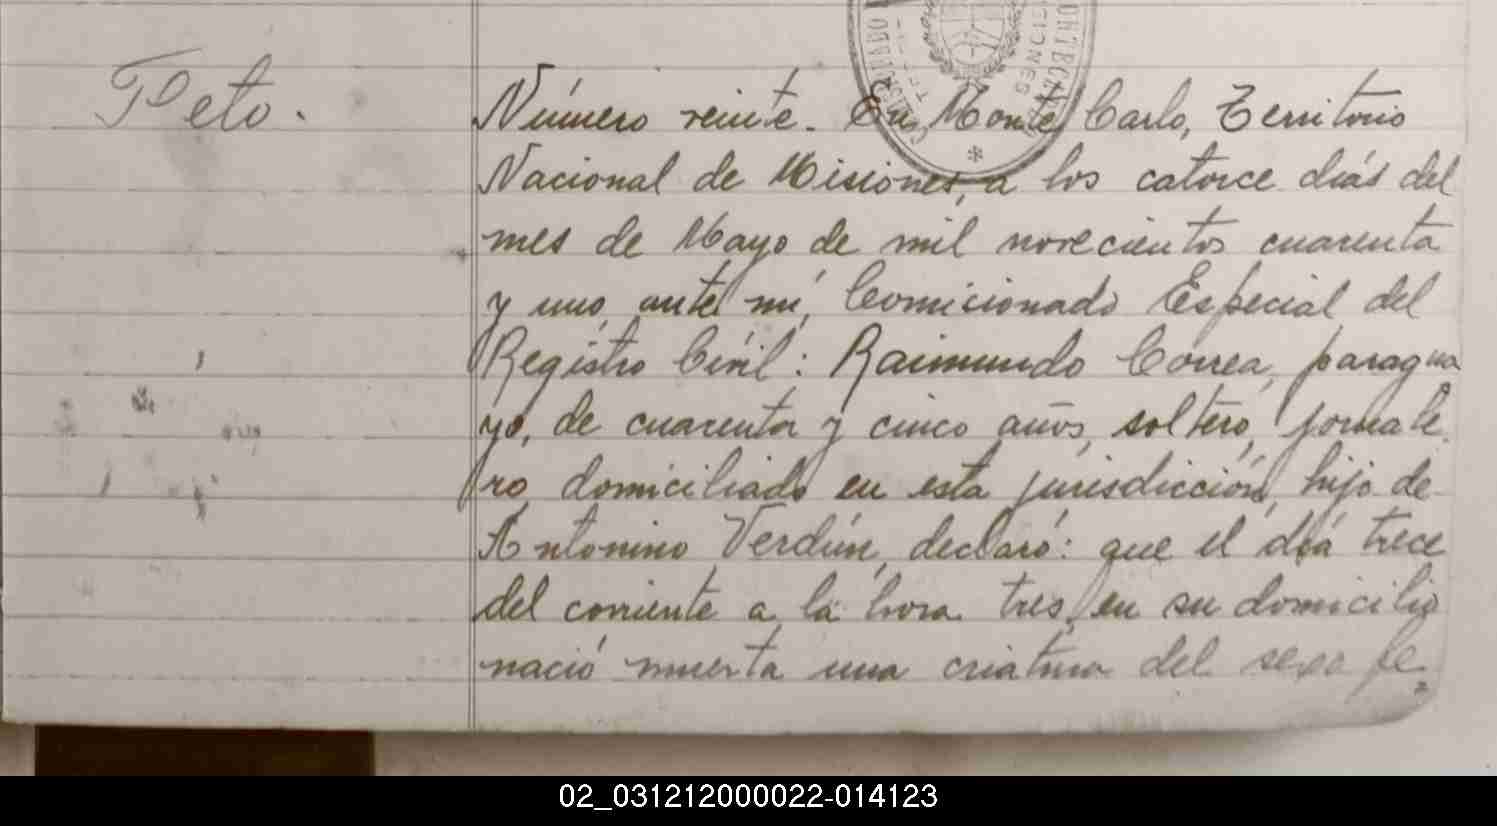 Feto.
Número veinte. En Monte Carlo, Territorio
Nacional de Misiones, a los catorce días del
mes de Mayo de mil novecientos cuarenta
y uno, ante mí, Comicionado Especial del
Registro Civil: Raimundo Correa, paragua
yo, de cuarenta y cinco años, soltero, jornale
ro, domiciliado en esta jurisdicción, hijo de
Antonino Verdún, declaró: que el día trece
del corriente a la hora tres, en su domicilio
nació muerta una criatura del sexo fe
02_031212000022-014123